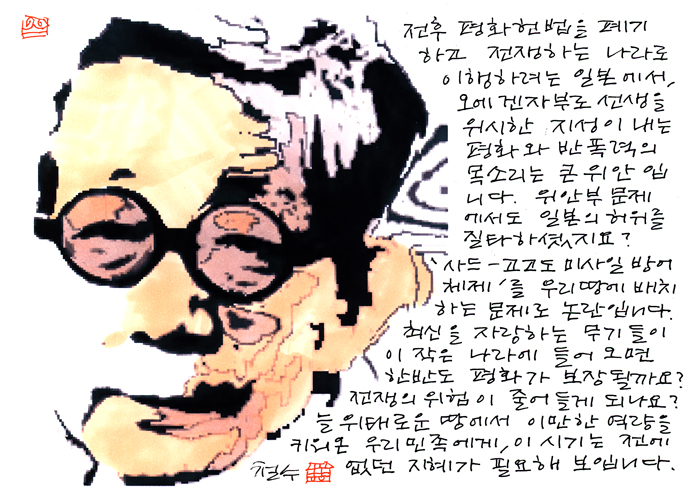 전후 평화헌법을 폐기
하고 전쟁하는 나라로
이행하려는 일본에서,
오에겐자부로 선생을
위시한 지성이 내는
평화와 반폭력의
목소리는 큰 위안 입
니다. 위안부 문제
에서도 일본의 허위를
질타하셨지요?
'사드-고고도 미사일 방어
체제'를 우리땅에 배치
하는 문제로 논란입니다.
혁신을 자랑하는 무기들이
이 작은 나라에 들어오면
한반도 평화가 보장될까요?
전쟁의 위험이 줄어들게 되나요?
늘 위태로운 땅에서 이만한 역량을
키워온 우리민족에게, 이 시기는 전에
없던 지혜가 필요해 보입니다.
철수